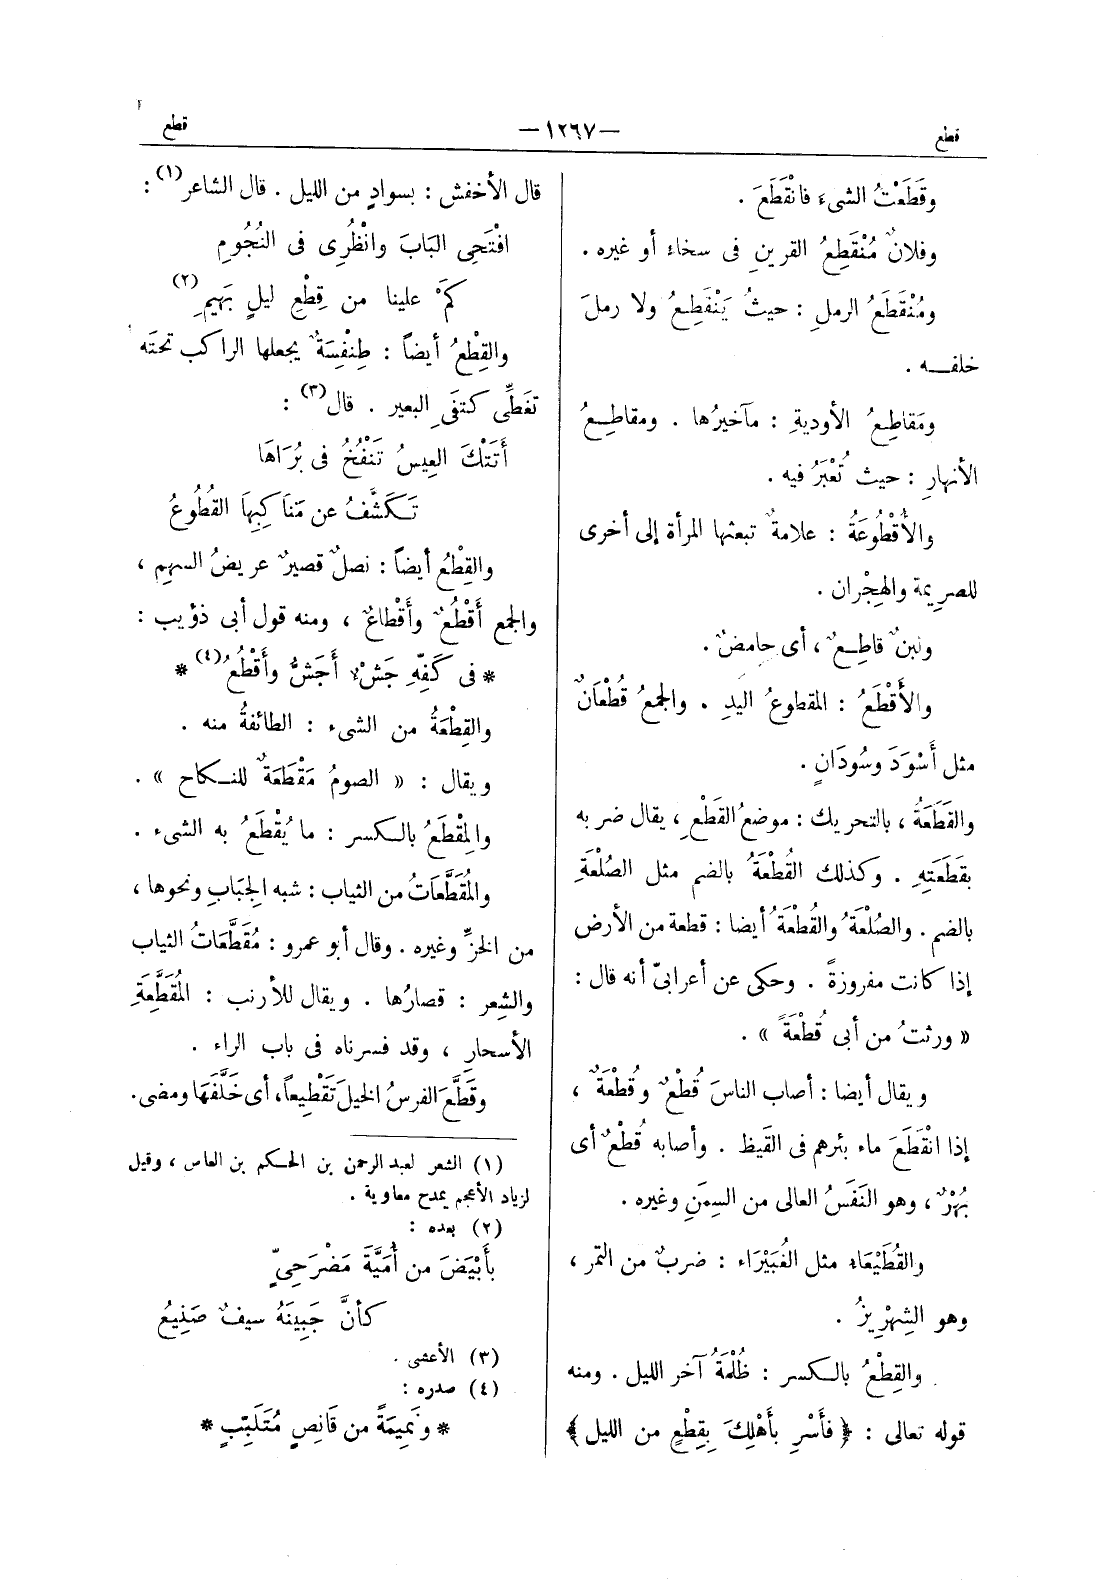 قطع
— ١٢٦٧ —
قطع
وقَطَعْتُ الشىءَ فانْقَطَعَ .
وفلانٌ مُنْقَطِعُ القرينِ فى سخاء أو غيره .
ومُنْقَطَعُ الرملِ : حيثُ يَنْقَطِعُ ولا رملَ
خلفه .
ومَقاطِعُ الأوديةِ : مآخيرُها . ومقاطِعُ
الأنهارِ : حيث تُعْبَرُ فيه .
والأُقْطُوعَةُ : علامةٌ تبعثها المرأة إلى أخرى
للصرِيمة والهِجْران .
ولبنٌ قاطِعٌ ، أى حامضٌ .
والأَقْطَعُ : المقطوعُ اليدِ . والجمعُ قُطْعَانٌ
مثل أَسْوَدَ وسُودَانٍ .
والقَطَعَةُ ، بالتحريك : موضعُ القَطْعِ ، يقال ضربه
بقَطَعَتِهِ . وكذلك القُطْعَةُ بالضم مثل الصُلْعَةِ
بالضم . والصُلْعَةُ والقُطْعَةُ أيضا : قطعة من الأرض
إذا كانت مفروزةً . وحكى عن أعرابىّ أنه قال :
« ورثتُ من أبى قُطْعَةً » .
ويقال أيضا : أصاب الناسَ قُطْعٌ وقُطْعَةٌ ،
إذا انْقَطَعَ ماء بئرهم فى القَيظ . وأصابه قُطْعٌ أى
بُهْرٌ ، وهو النَفَسُ العالى من السِمَنِ وغيره .
والقُطَيْعَاء مثل الغُبَيْرَاء : ضربٌ من التمر ،
وهو الشِهْرِيزُ .
والقِطْعُ بالكسر : ظُلْمَةُ آخر الليل . ومنه
قوله تعالى : ﴿ فأَسْرِ بأَهْلِكَ بِقِطْعٍ من الليل ﴾
قال الأخفش : بسوادٍ من الليل . قال الشاعر (١) :
افْتَحِى البَابَ وانْظُرِى فى النُجُومِ
كَمْ علينا من قِطْعِ ليلٍ بَهِيمِ (٢)
والقِطْعُ أيضاً : طِنْفِسَةٌ يجعلها الراكب تحتَه
تغَطِّى كتفَىِ البعير . قال (٣) :
أَتَتْكَ العِيسُ تَنْفُخُ فى بُرَاهَا
تَكَشَّفُ عن مَناكِبِهَا القُطُوعُ
والقِطْعُ أيضاً : نصلٌ قصيرٌ عريضُ السهمِ ،
والجمع أَقْطُعٌ وأَقْطاعٌ ، ومنه قول أبى ذؤيب :
* فى كَفِّهِ جَشْءٌ أَجَشُّ وأَقْطُعُ (٤) *
والقِطْعَةُ من الشىء : الطائفةُ منه .
ويقال : « الصومُ مَقْطَعَةٌ للنكاح » .
والمِقْطَعُ بالكسر : ما يُقْطَعُ به الشىء .
والمُقَطَّعَاتُ من الثياب : شبه الجِبَابِ ونحوها ،
من الخزِّ وغيره . وقال أبو عمرو : مُقَطَّعَاتُ الثياب
والشِعر : قصارُها . ويقال للأرنب : المُقَطِّعَةِ
الأسحار ، وقد فسرناه فى باب الراء .
وقَطَّعَ الفرسُ الخيلَ تَقْطِيعاً، أى خَلَّفَهَا ومضى.
(١) الشعر لعبد الرحمن بن الحكم بن العاص ، وقيل
لزياد الأعجم يمدح معاوية .
(٢) بعده :
بأَبْيَضَ من أُمَيَّةَ مَضْرَحِىٍّ
كأنَّ جَبِينَهُ سيفٌ صَنِيعُ
(٣) الأعشى .
(٤) صدره :
* ونَمِيمَةً من قَانِصٍ مُتَلَبِّبٍ *